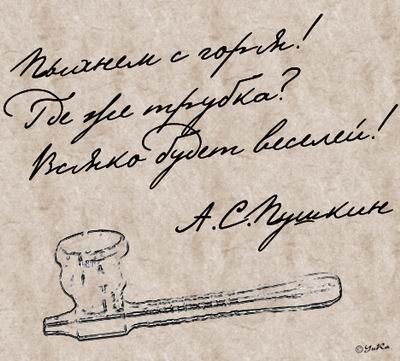 Пыхнем с горя!
Где же трубка?
Всяко будет веселей!
А.С.Пушкин
©YuRa